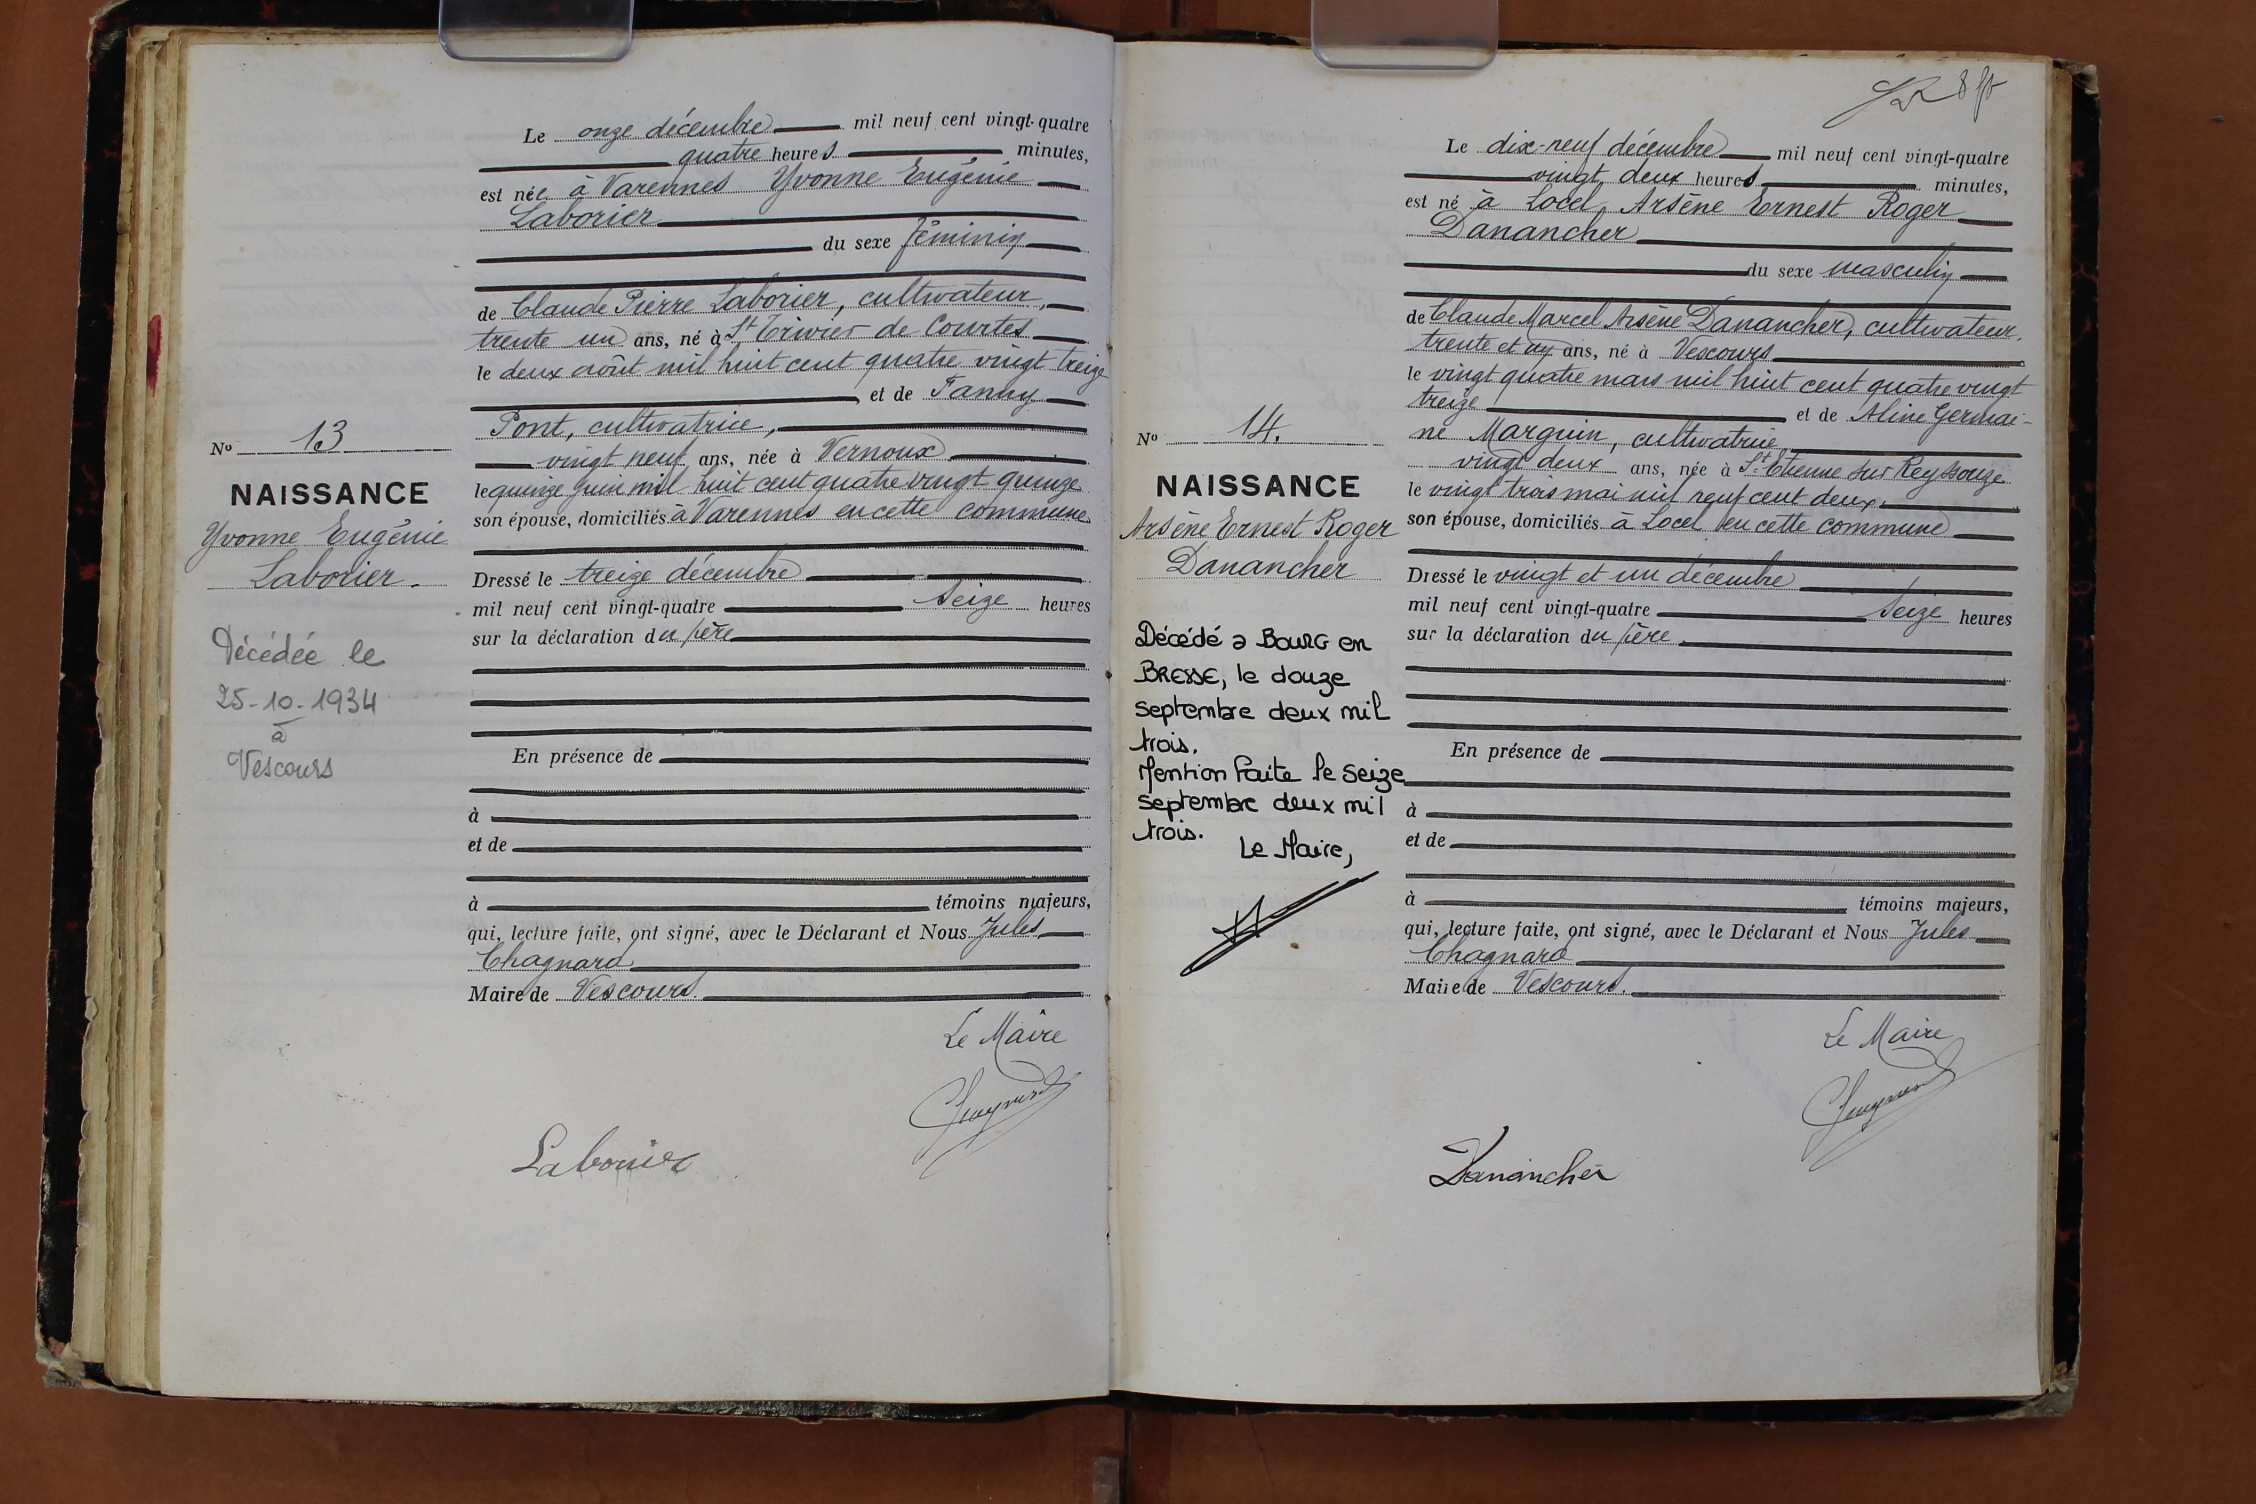 Le onze décembre mil neuf cent vingt-quatre
quatre heures minutes,
est née à Varennes Yvonne Eugénie
Laborier
du sexe féminin
de Claude Pierre Laborier, cultivateur,
trente un ans, né à St Trivier de Courtes
le deux août mil huit cent quatre vingt treize
et de Fanny
Pont, cultivatrice,
vingt neuf ans, née à Vernoux
le quinze juin mil huit cent quatre vingt quinze
son épouse, domiciliés à Varennes en cette commune
Dressé le treize décembre
mil neuf cent vingt-quatre seize heures
sur la déclaration du père
En présence de
à
et de
à témoins majeurs,
qui, lecture faite, ont signé, avec le Déclarant et Nous Jules
Chagnard
Maire de Vescours.
Le Maire
Chagnard
Laborier
No 13
NAISSANCE
Yvonne Eugénie
Laborier.
Décédée le
25-10-1934
à
Vescours
Le dix-neuf décembre mil neuf cent vingt-quatre
vingt deux heures minutes,
est né à Locel, Arsène Ernest Roger
Danancher
du sexe masculin
de Claude Marcel Arsène Danancher, cultivateur,
trente et un ans, né à Vescours
le vingt quatre mars mil huit cent quatre vingt
treize et de Aline Germai-
ne Marguin, cultivatrice
vingt deux ans, née à St Etienne sur Reyssouze
le vingt trois mai mil neuf cent deux,
son épouse, domiciliés à Locel en cette commune
Dressé le vingt et un décembre
mil neuf cent vingt-quatre seize heures
sur la déclaration du père
En présence de
à
et de
à témoins majeurs,
qui, lecture faite, ont signé, avec le Déclarant et Nous Jules
Chagnard
Maire de Vescours.
Le Maire
Chagnard
Danancher
No 14.
NAISSANCE
Arsène Ernest Roger
Danancher
Décédé à BOURG en
BRESSE, le douze
septembre deux mil
trois.
Mention faite le seize
septembre deux mil
trois.
Le Maire,